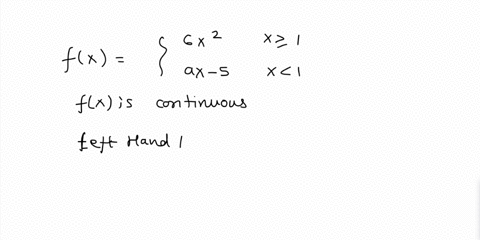 f(x) = { 6x² x ≥ 1
ax-5 x < 1
f(x) is continuous
Left Hand l